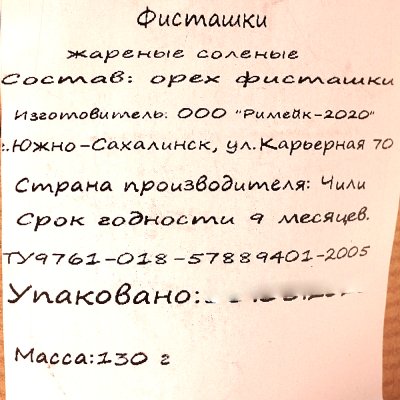 Фисташки
жареные соленые
Состав: орех фисташки
Изготовитель: ООО "Римейк-2020"
г.Южно-Сахалинск, ул.Карьерная 70
Страна производителя: Чили
Срок годности 9 месяцев.
ТУ9761-018-57889401-2005
Упаковано:
Масса:130 г